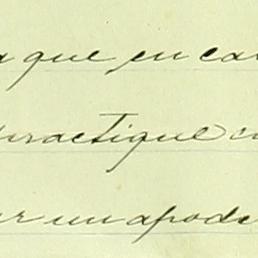 a que en ca
practique c
ar un apode